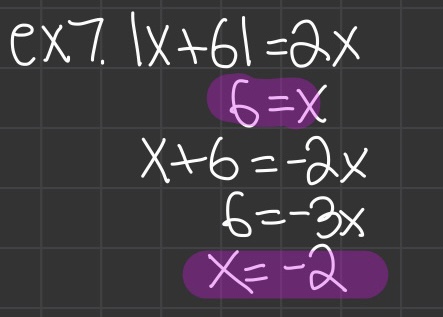 ex7. |x+6|=2x
6=x
x+6=-2x
6=-3x
x=-2